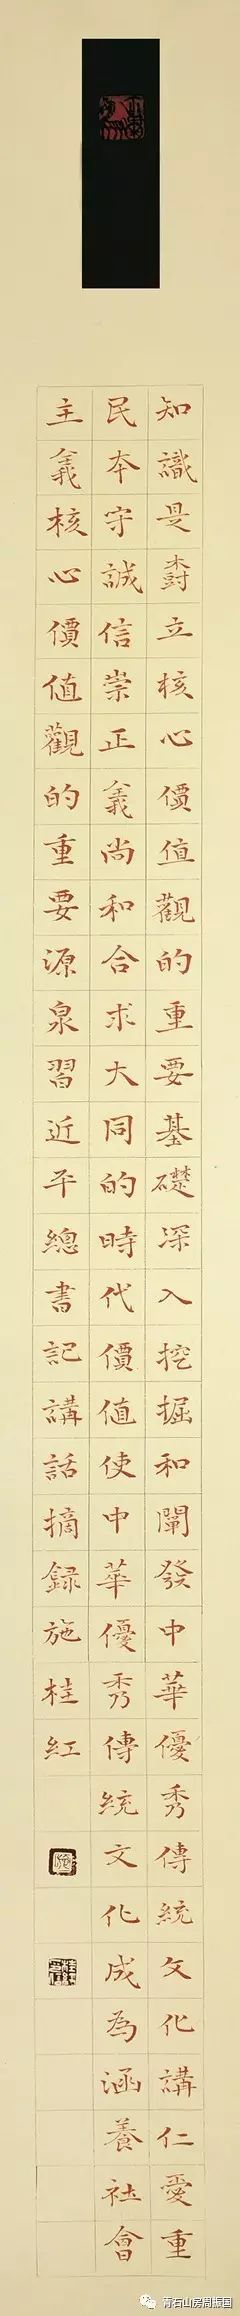 知識是樹立核心價值觀的重要基礎深入挖掘和闡發中華優秀傳統文化講仁愛重
民本守誠信崇正義尚和合求大同的時代價值使中華優秀傳統文化成為涵養社會
主義核心價值觀的重要源泉習近平總書記講話摘録施桂紅
青石山房尚振国